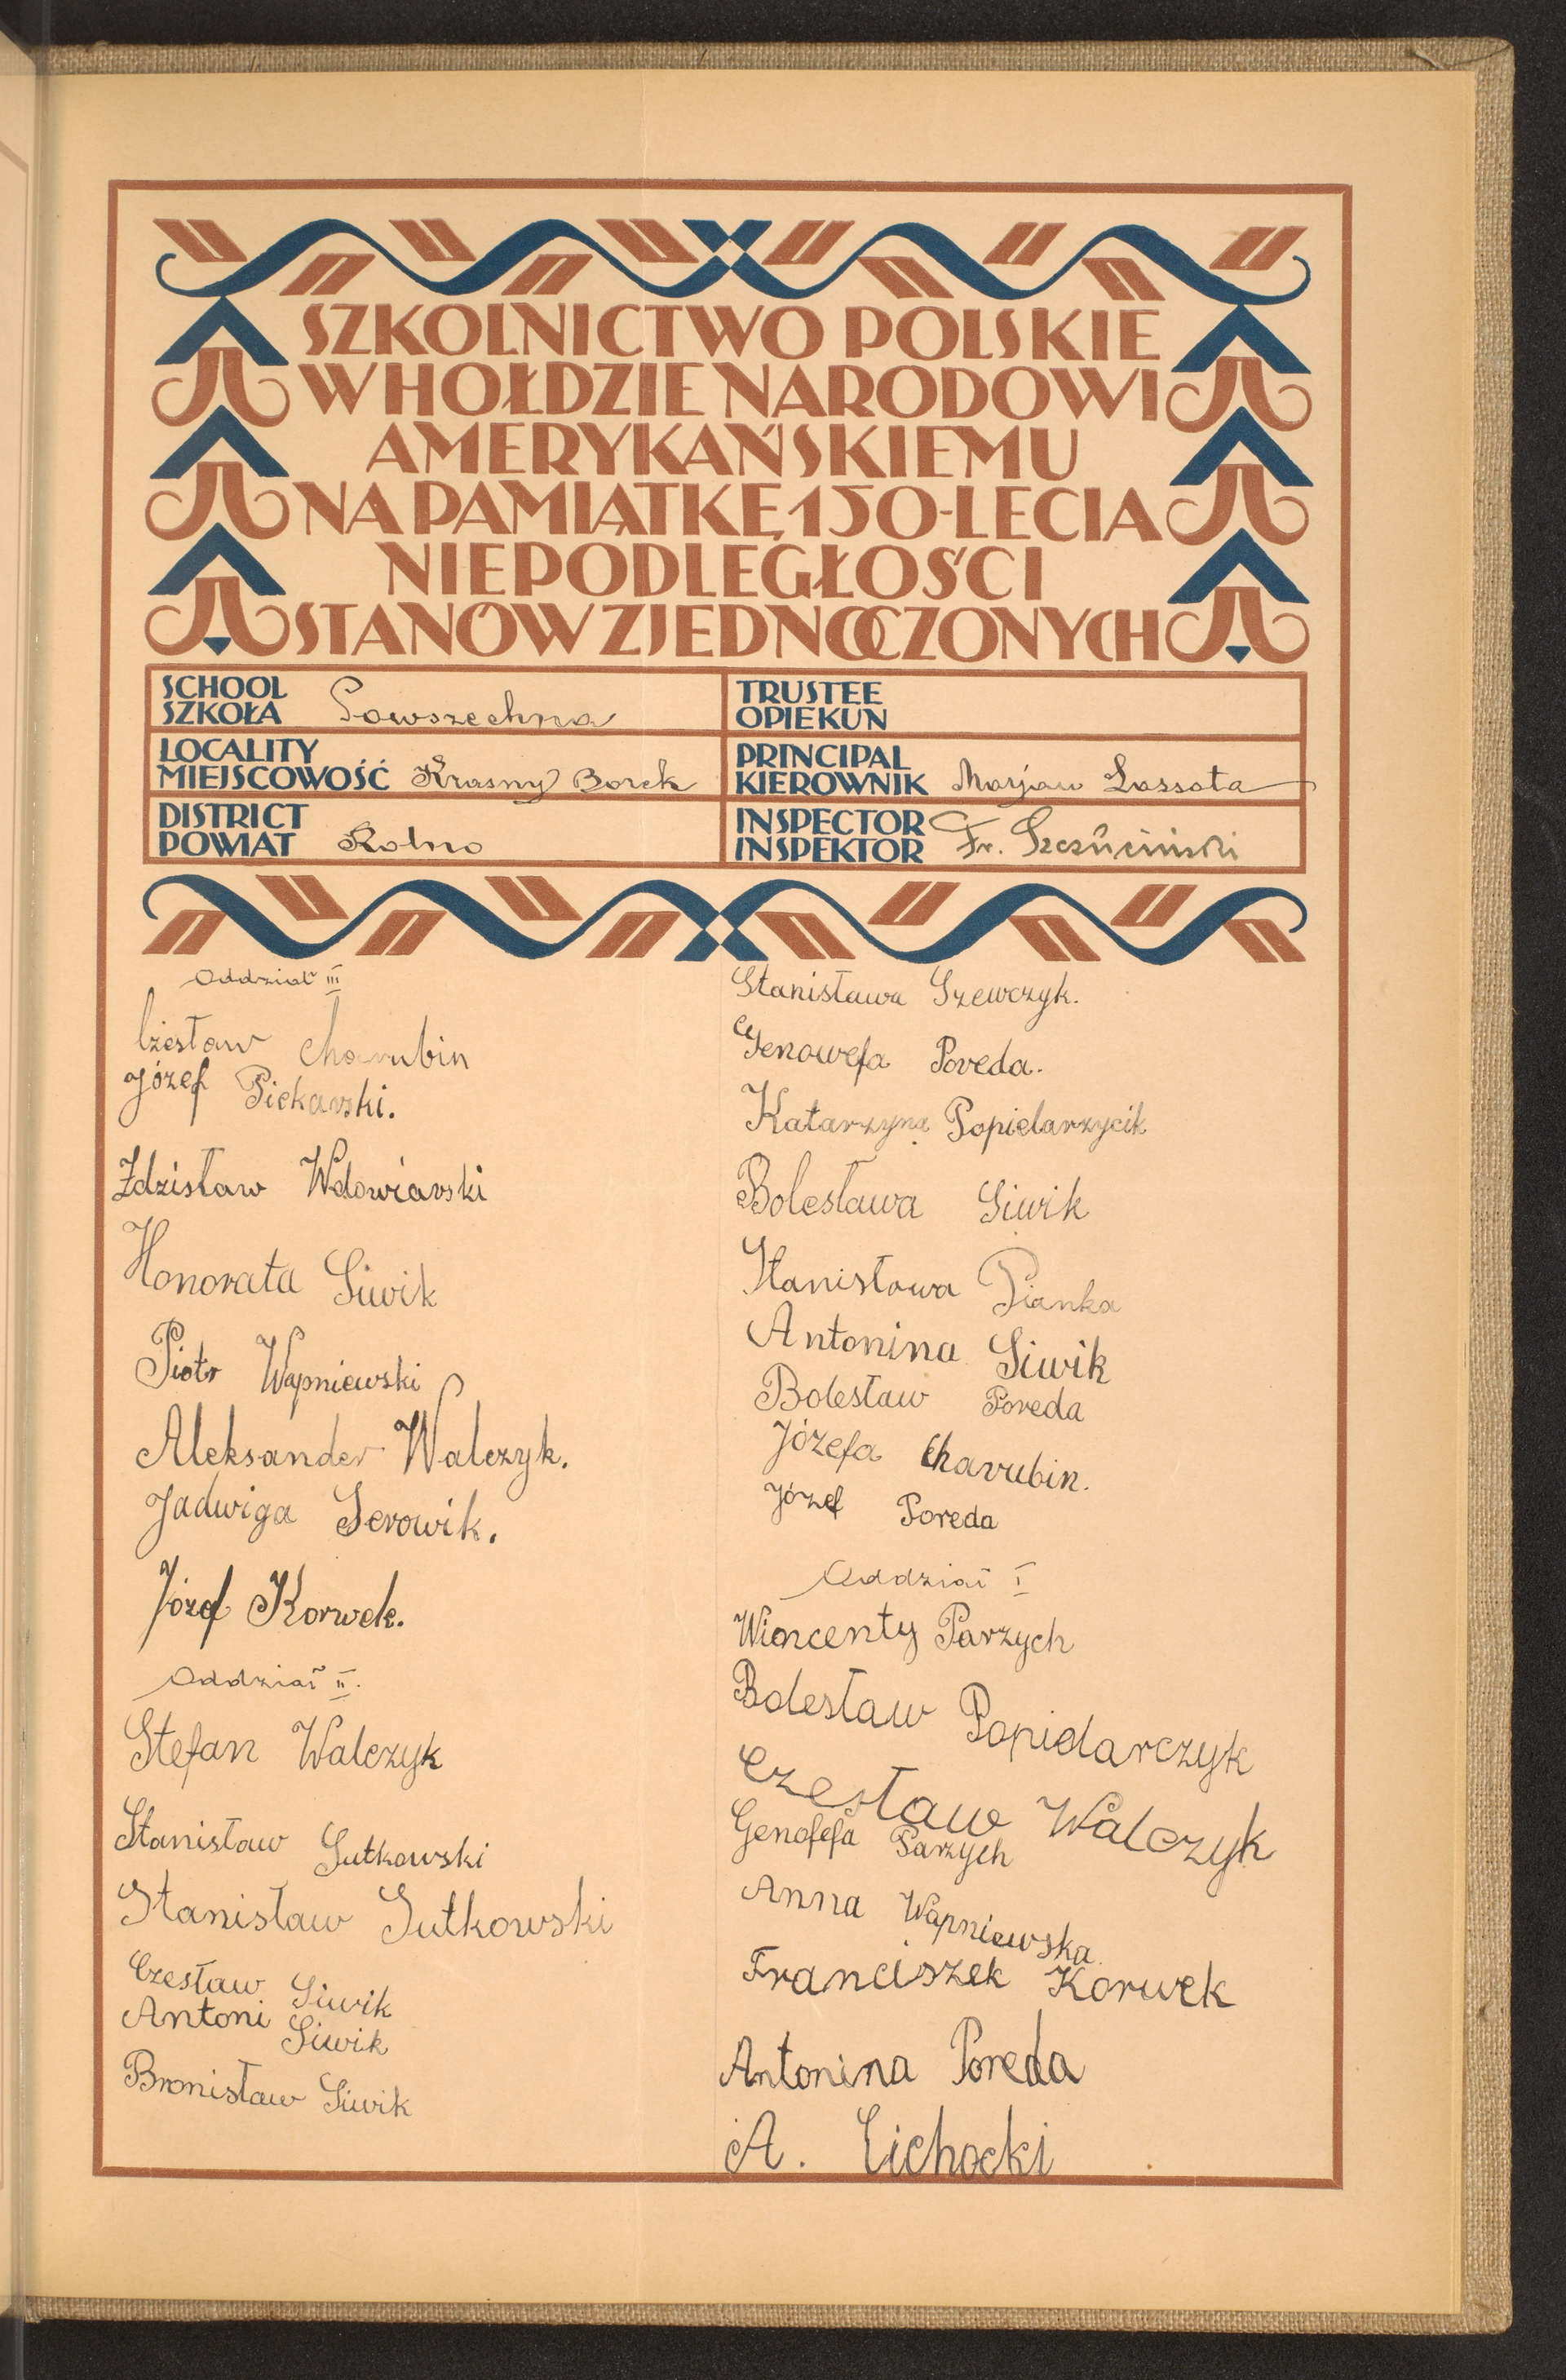 SZKOLNICTWO POLSKIE
W HOŁDZIE NARODOWI
AMERYKAŃSKIEMU
NA PAMIĄTKĘ 150-LECIA
NIEPODLEGŁOŚCI
STANÓW ZJEDNOCZONYCH
SCHOOL
SZKOŁA Powszechna
LOCALITY
MIEJSCOWOŚĆ Krasny Borek
DISTRICT
POWIAT Kolno
TRUSTEE
OPIEKUN
PRINCIPAL
KIEROWNIK Marjan Lassota
INSPECTOR
INSPEKTOR Fr. Szczuciński
Oddział III
Czesław Charubin
Józef Piekarski.
Zdzisław Wdowiarski
Honorata Siwik
Piotr Wapniewski
Aleksander Walczyk.
Jadwiga Serowik.
Józef Korwek.
Oddział II.
Stefan Walczyk
Stanisław Sutkowski
Stanisław Sutkowski
Czesław Siwik
Antoni Siwik
Bronisław Siwik
Stanisława Szewczyk.
Genowefa Poreda.
Katarzyna Popielarzycik
Bolesława Siwik
Stanisława Pianka
Antonina Siwik
Bolesław Poreda
Józefa Charubin.
Józef Poreda
Oddział I
Wincenty Parzych
Bolesław Popielarczyk
Czesław Walczyk
Genofefa Parzych
Anna Wapniewska
Franciszek Korwek
Antonina Poreda
A. Cichocki